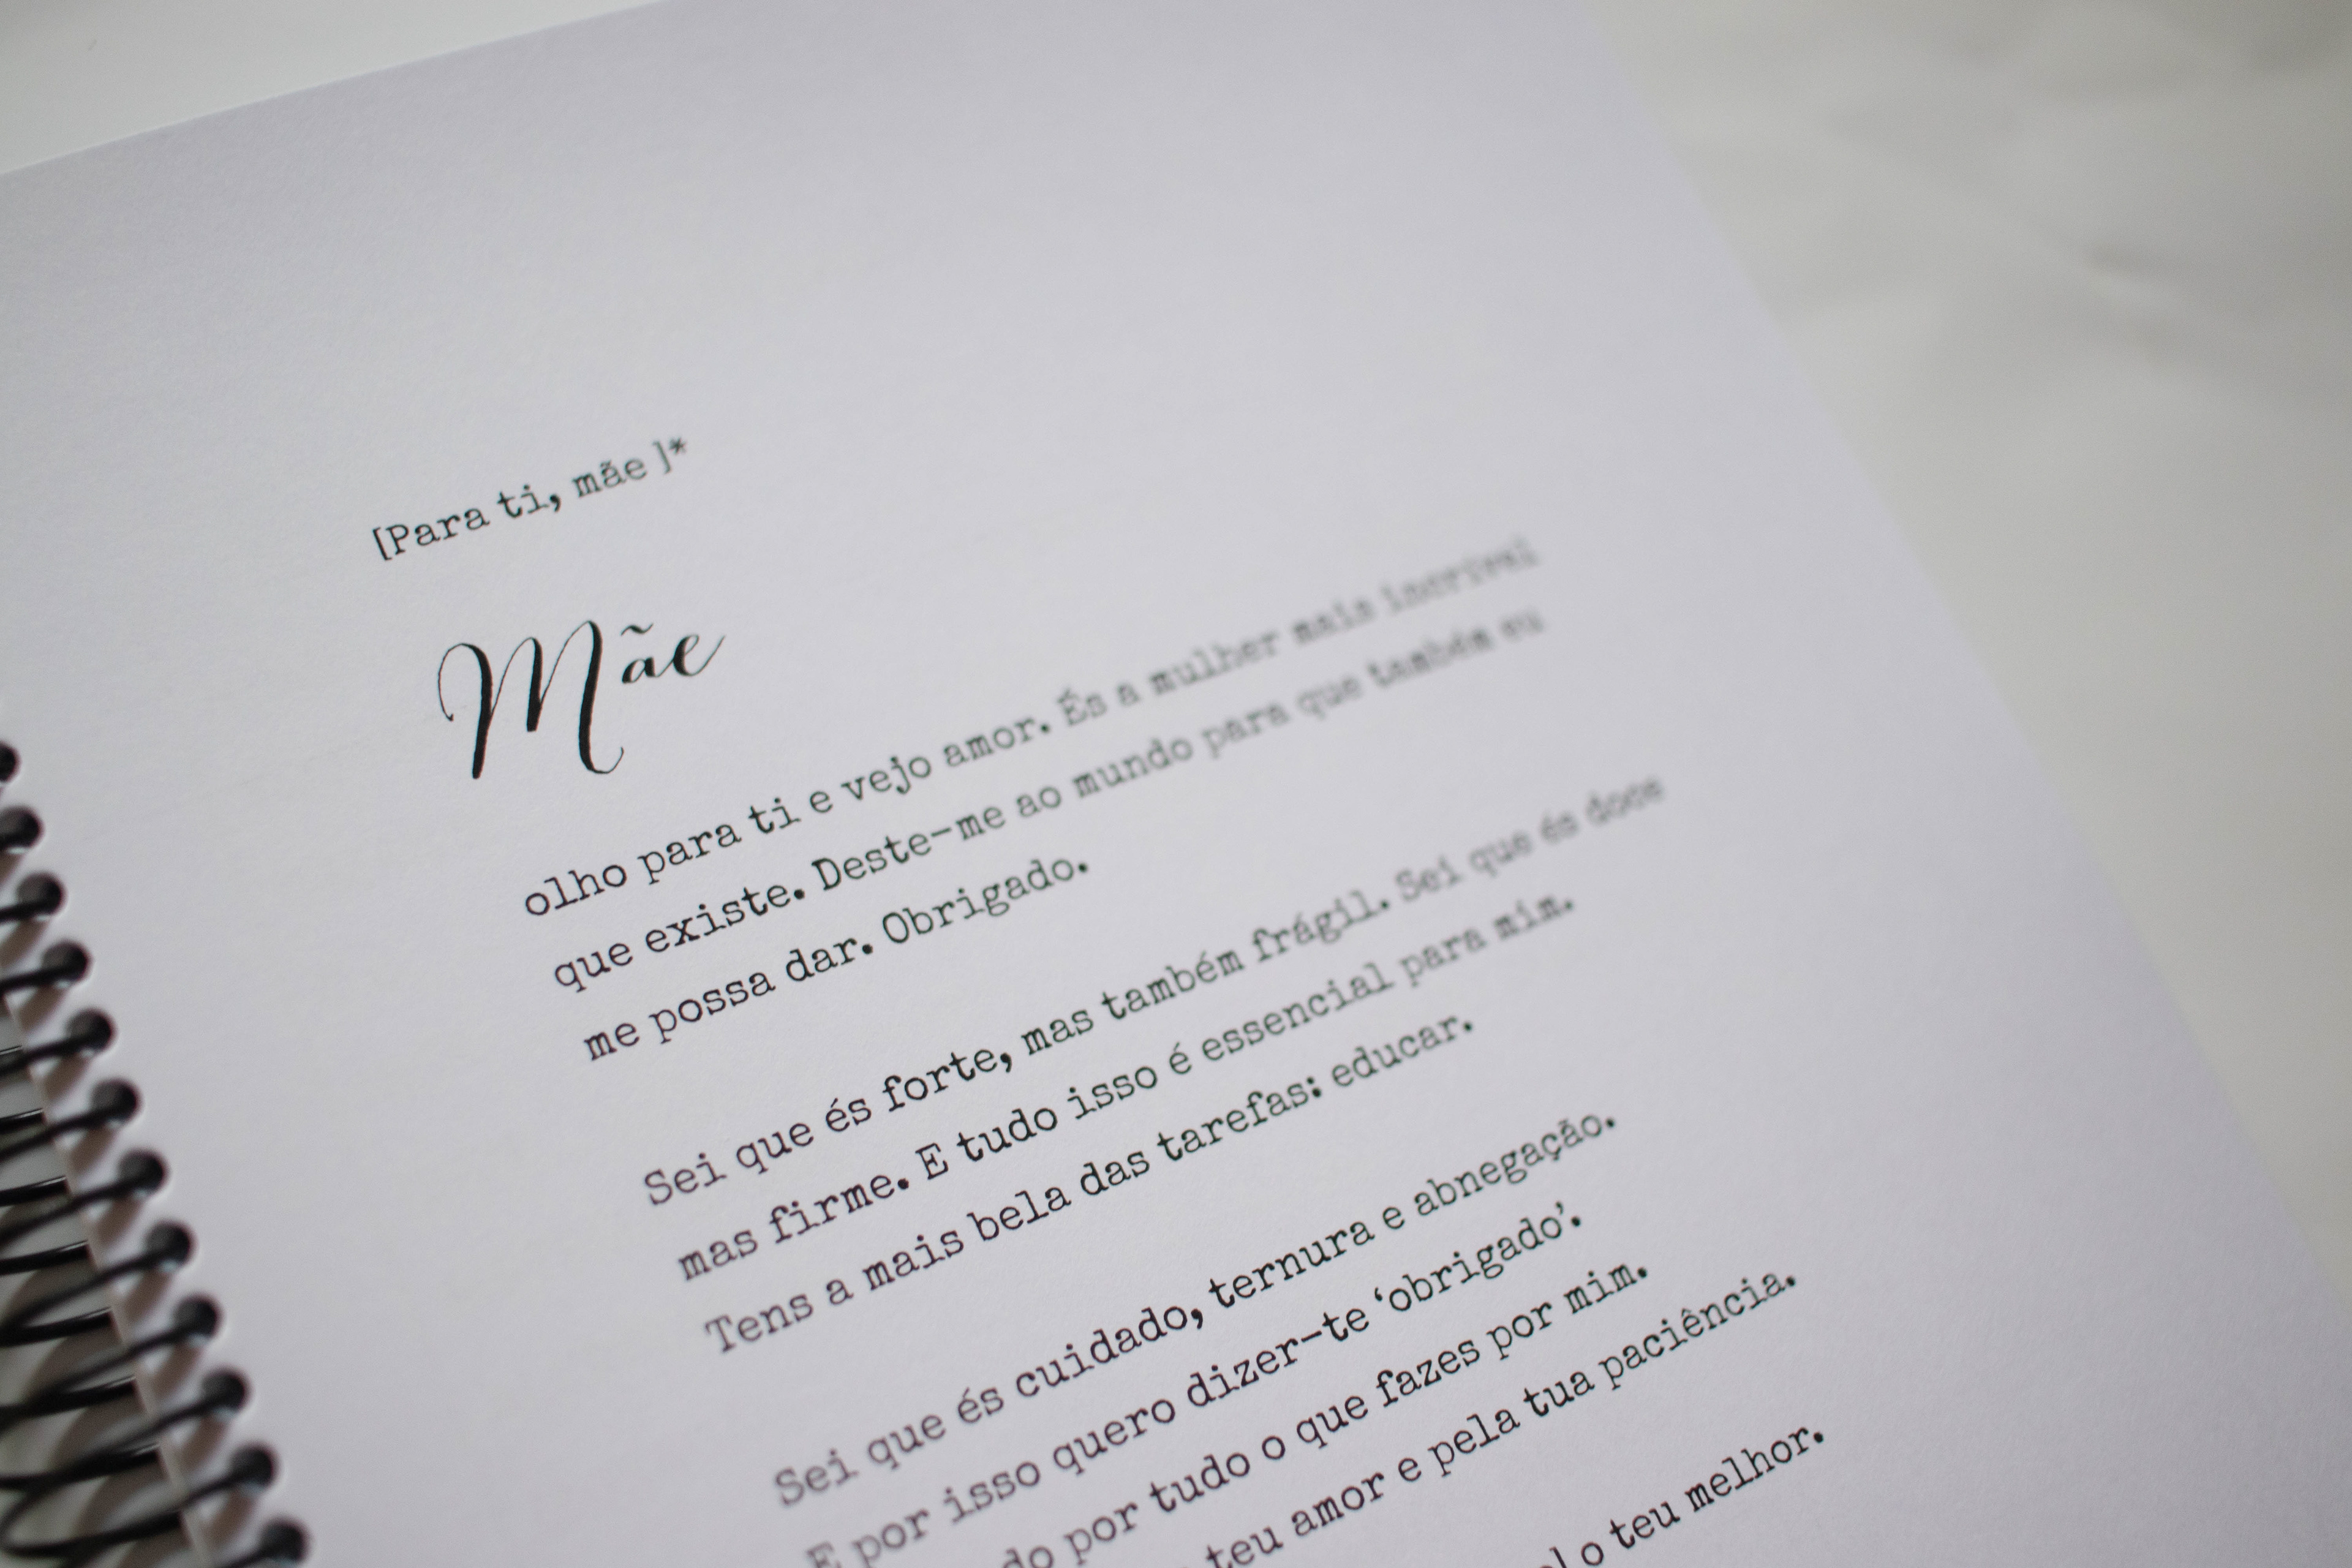 [Para ti, mãe ]*
Mãe
olho para ti e vejo amor. És a mulher mais incrível
que existe. Deste-me ao mundo para que também eu
me possa dar. Obrigado.
Sei que és forte, mas também frágil. Sei que és doce
mas firme. E tudo isso é essencial para mim.
Tens a mais bela das tarefas: educar.
Sei que és cuidado, ternura e abnegação.
E por isso quero dizer-te ‘obrigado’.
do por tudo o que fazes por mim.
teu amor e pela tua paciência.
o teu melhor.